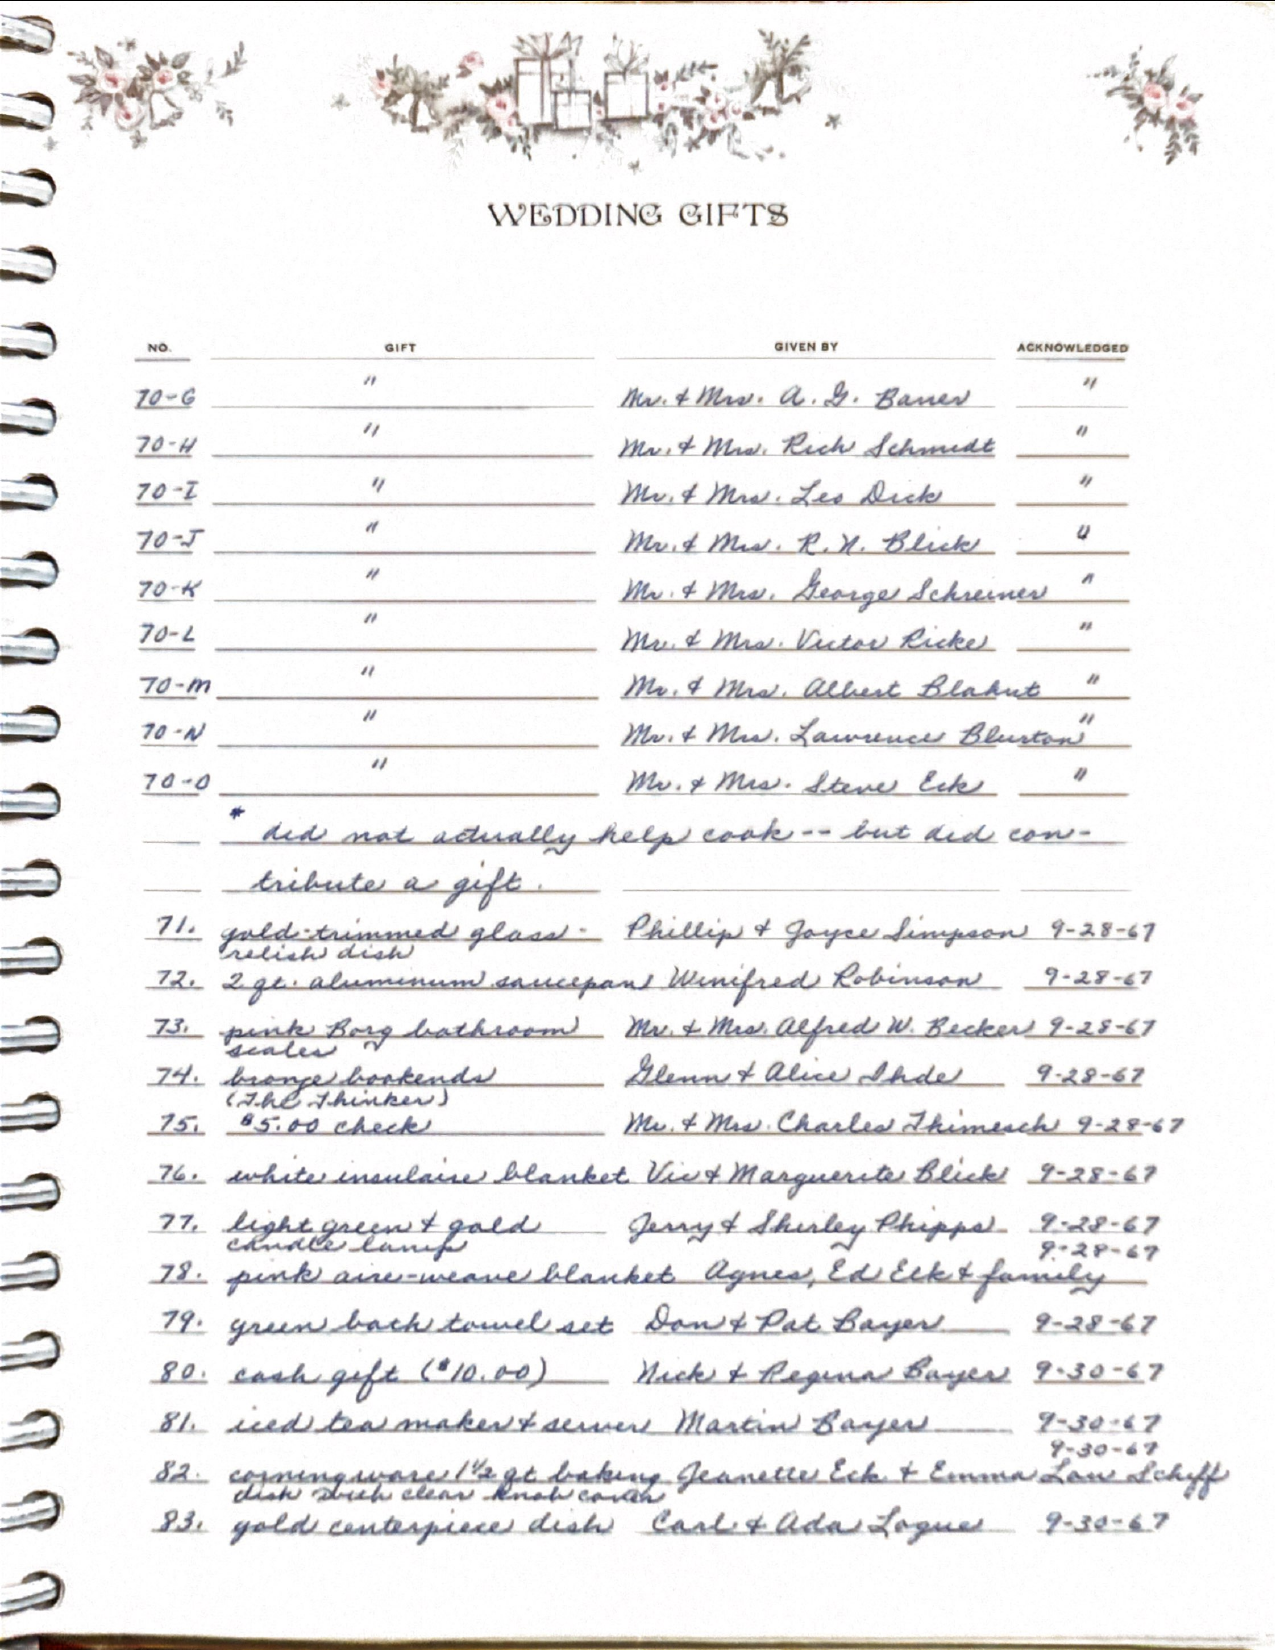 WEDDING GIFTS
NO. GIFT GIVEN BY ACKNOWLEDGED
70-G " Mr. & Mrs. A. G. Bauer "
70-H " Mr. & Mrs. Rich Schmidt "
70-I " Mr. & Mrs. Leo Dick "
70-J " Mr. & Mrs. R. N. Blick "
70-K " Mr. & Mrs. George Schreiner "
70-L " Mr. & Mrs. Victor Ricke "
70-M " Mr. & Mrs. Albert Blahut "
70-N " Mr. & Mrs. Lawrence Blurton "
70-O " Mr. & Mrs. Steve Eck "
* did not actually help cook -- but did con-
tribute a gift.
71. gold-trimmed glass- Phillip & Joyce Simpson 9-28-67
relish dish
72. 2 qt. aluminum saucepan Winifred Robinson 9-28-67
73. pink Borg bathroom Mr. & Mrs. Alfred W. Becker 9-28-67
scales
74. bronze bookends Glenn & Alice Ihde 9-28-67
(The Thinker)
75. $5.00 check Mr. & Mrs. Charles Thimesch 9-28-67
76. white insulaire blanket Vic & Marguerite Blick 9-28-67
77. light green & gold Jerry & Shirley Phipps 9-28-67
candle lamp 9-28-67
78. pink aire-weave blanket Agnes, Ed Eck & family
79. green bath towel set Don & Pat Bayer 9-28-67
80. cash gift ($10.00) Nick & Regina Bayer 9-30-67
81. iced tea maker & server Martin Bayer 9-30-67
9-30-67
82. corningware 1 1/2 qt baking Jeanette Eck & Emma Lou Schiff
dish with clear knob cover
83. gold centerpiece dish Carl & Ada Logue 9-30-67